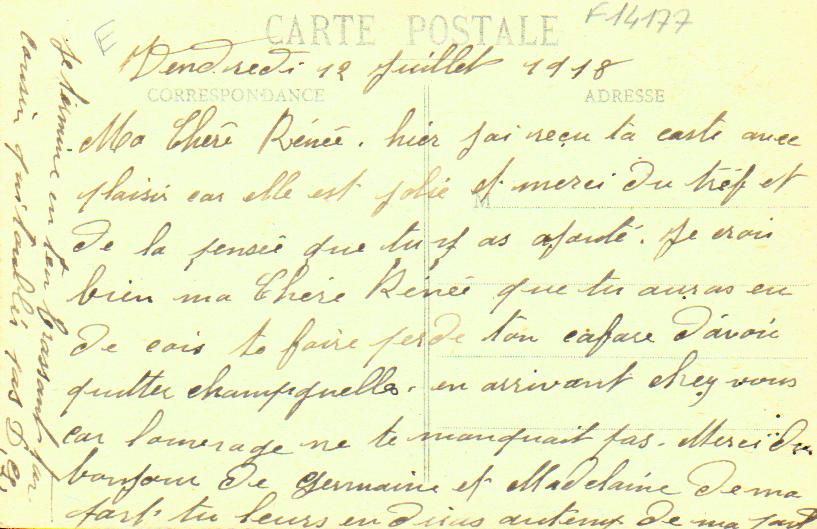 F14177
E
CARTE POSTALE
Vendredi 12 Juillet 1918
CORRESPONDANCE
ADRESSE
Ma Chère Rénée. hier j'ai reçu ta carte avec
plaisir car elle est jolie et merci du tréf et
M
de la pensée que tu y as ajouté. Je crois
bien ma Chère Rénée que tu auras eu
de cois te faire perde ton cafare d'avoir
quitter champignelle. en arrivant chez vous
car l'ouvrage ne te manquait pas. Merci du
bonjour de Germaine et Madelaine de ma
part tu leurs en diras autemp de ma part
Je termine en t'en brassant ton
cousin qui t'oublis pas D.G.